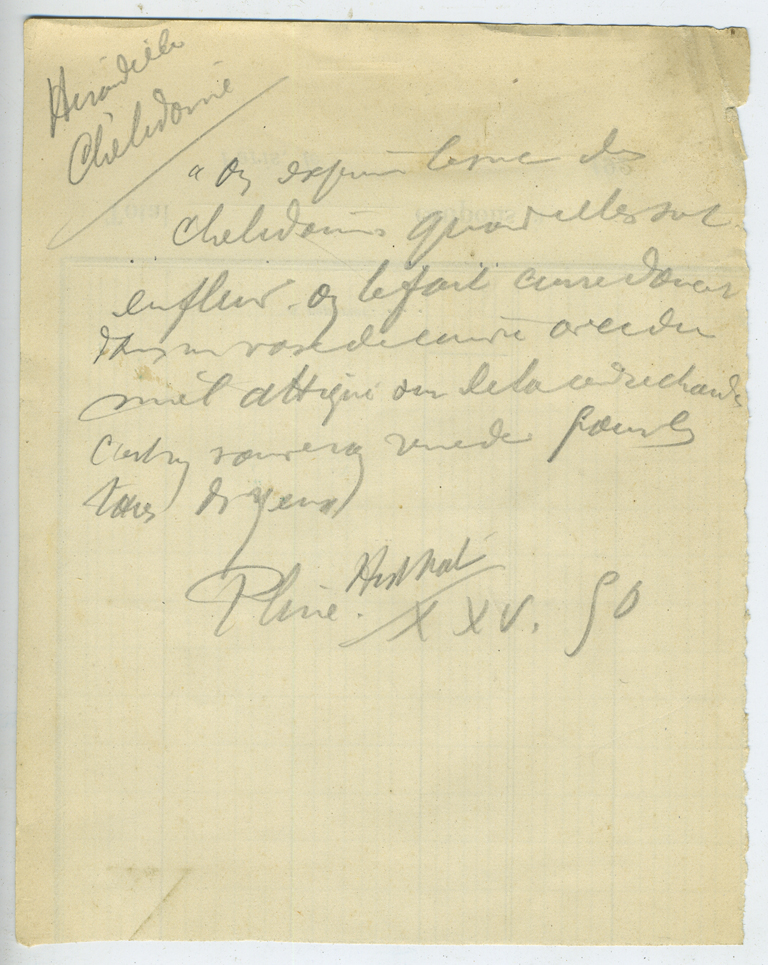 Hirondelle
Chélidoine
" On exprime le suc des
chélidoines quand elles sont
en fleur. on le fait cuire doucet
dans un vase de cuivre avec du
miel attique sur de la cendre chaude
C'est un souverain remède pour les
taies des yeux
Pline. Hist Nat
XXV. 50